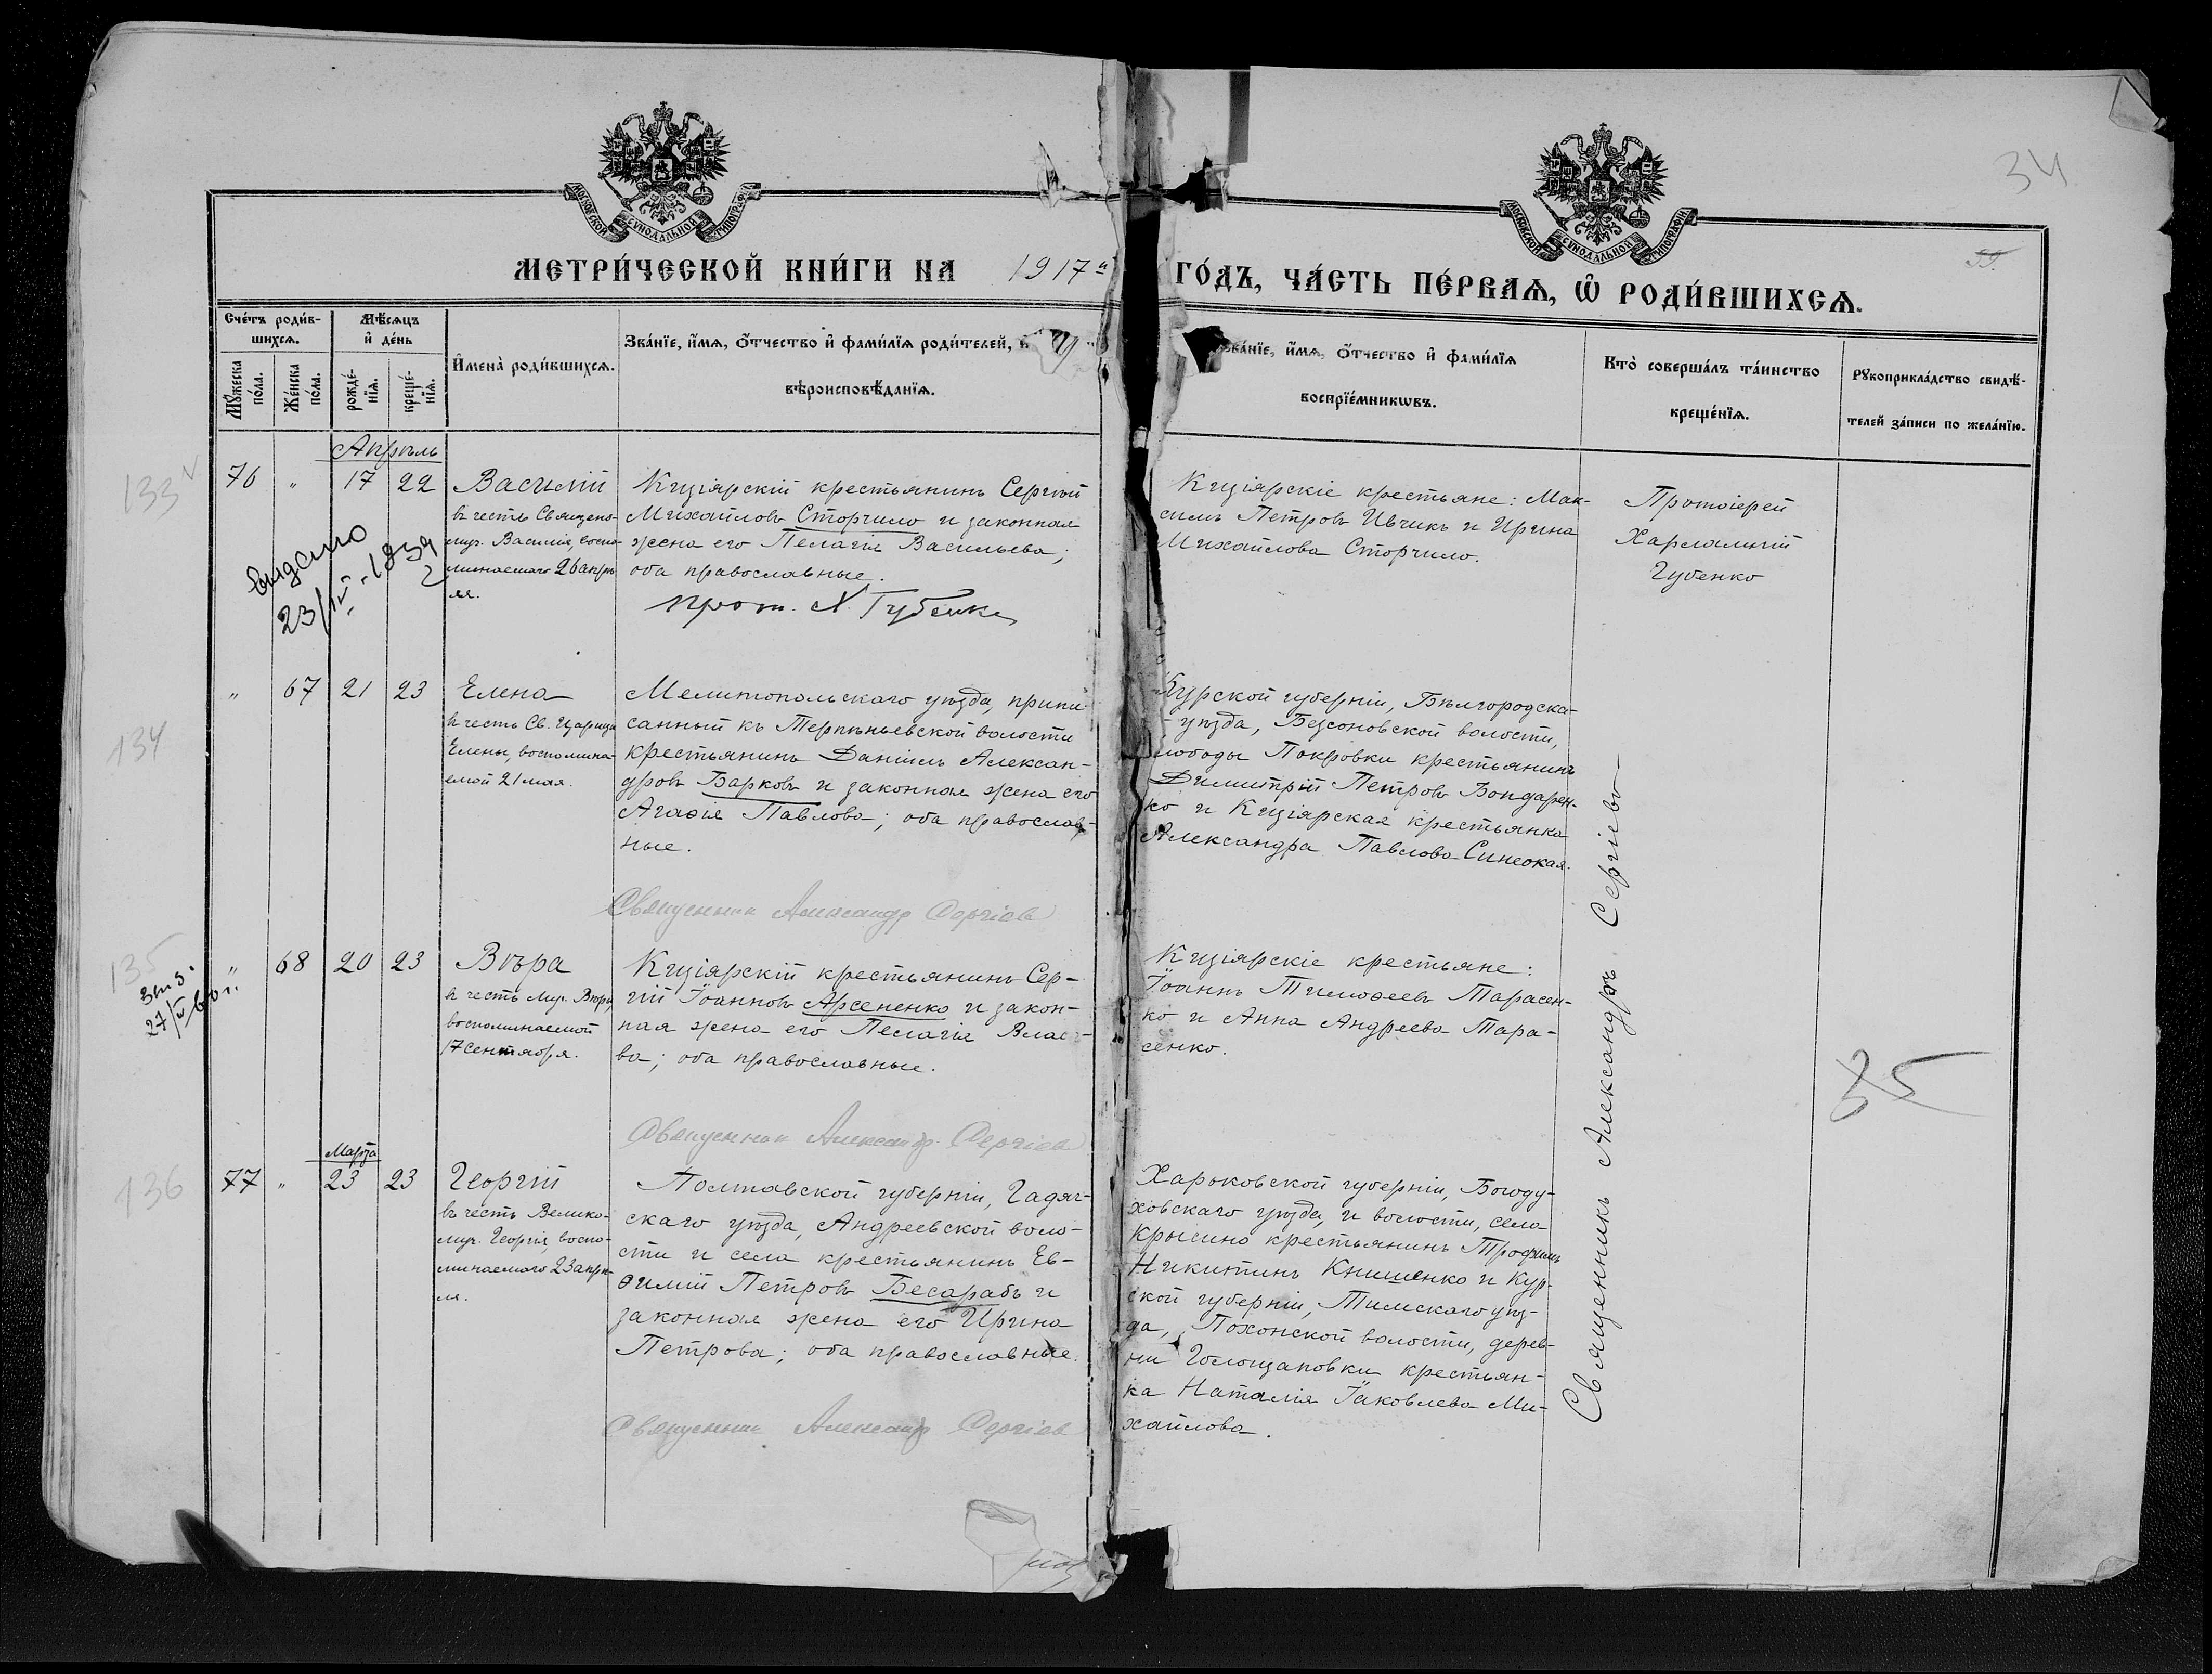 34
МОСКОВСКОЙ СѴНОДАЛЬНОЙ ТИПОГРАФІИ
МОСКОВСКОЙ СѴНОДАЛЬНОЙ ТИПОГРАФІИ
МЕТРИ́ЧЕСКОЙ КНИ́ГИ НА 1917й ГО́ДЪ, ЧА́СТЬ ПЕ́РВАѦ, Ѡ҆ РОДИ́ВШИХСѦ.
Сче́тъ роди́в-
шихсѧ.
Мꙋ́жеска
по́ла.
Же́нска
по́ла.
Мѣ́сѧцъ
и҆ де́нь
рожде́-
нїѧ.
креще́-
нїѧ.
И҆мена̀ роди́вшихсѧ.
Зва́нїе, и҆́мѧ, ѻ҆́тчество и҆ фами́лїѧ роди́телей, и҆
вѣроисповѣ́данїѧ.
Зва́нїе, и҆́мѧ, ѻ҆́тчество и҆ фами́лїѧ
воспрїе́мникѡвъ.
Кто̀ соверша́лъ та́инство
креще́нїѧ.
Рꙋкоприкла́дство свидѣ́-
телей за́писи по жела́нїю.
Апрѣль
133
76 " 17 22
Василій
въ честь Священо-
муч. Василія, воспо-
минаемаго 26 апрѣ-
ля.
выдано
23/IV-1939
Кизіярскій крестьянинъ Сергій
Михайловъ Сторчило и законная
жена его Пелагія Васильева;
оба православные.
Прот. Х. Губенко
Кизіярскіе крестьяне: Мак-
симъ Петровъ Ивчикъ и Ирина
Михайлова Сторчило.
Протоіерей
Харлампій
Губенко
134
" 67 21 23
Елена
въ честь Св. Царицы
Елены, воспомина-
емой 21 мая.
Мелитопольскаго уѣзда, припи-
санный къ Терпѣньевской волости
крестьянинъ Даніилъ Алексан-
дровъ Барковъ и законная жена его
Агаѳія Павлова; оба православ-
ные.
Священник Александр Сергіев
Курской губерніи, Бѣлгородска-
уѣзда, Безсоновской волости,
слободы Покровки крестьянинъ
Димитрій Петровъ Бондарен-
ко и Кизіярская крестьянка
Александра Павлова Синеокая.
135
" 68 20 23
27/V 60 г.
Вѣра
въ честь муч. Вѣры,
воспоминаемой
17 сентября.
Кизіярскій крестьянинъ Сер-
гій Іоанновъ Арсененко и закон-
ная жена его Пелагія Власо-
ва; оба православные.
Священник Александр Сергіев
Кизіярскіе крестьяне:
Іоаннъ Тимоѳеевъ Тарасен-
ко и Анна Андреева Тара-
сенко.
35
Марта
136
77 " 23 23
Георгій
въ честь Велико-
муч. Георгія, воспо-
минаемаго 23 апрѣ-
ля.
Полтавской губерніи, Гадяч-
скаго уѣзда, Андреевской воло-
сти и села крестьянинъ Ев-
ѳимій Петровъ Бесарабъ и
законная жена его Ирина
Петрова; оба православные.
Священник Александр Сергіев
Харьковской губерніи, Богоду-
ховскаго уѣзда, и волости, села
Крысино крестьянинъ Трофимъ
Никитинъ Книшенко и Кур-
ской губерніи, Тимскаго уѣз-
да, волости, дерев-
ни Голощаповки крестьян-
ка Наталія Іаковлева Ми-
хайлова.
Священникъ Александръ Сергіевъ